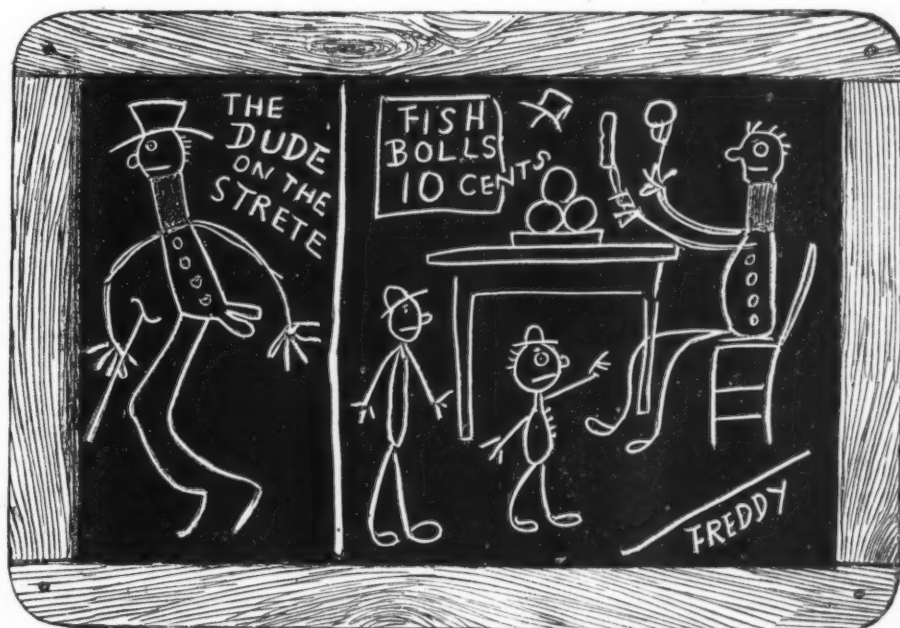 THE
DUDE
ON THE
STRETE
FISH
BOLLS
10 CENTS
FREDDY